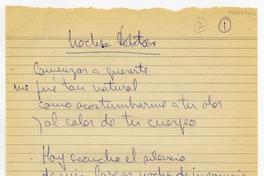 ② ①
Comenzar a quererte
me fué tan natural
como acostumbrarme a tu olor
y al calor de tu cuerpo
Hoy escucho el silencio
de mis largas noches de insomnio